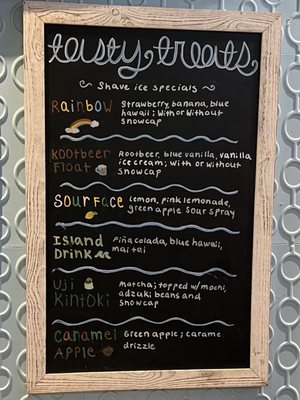 tasty treats
~ Shave ice specials ~
Rainbow
Strawberry, banana, blue
hawaii; With or Without
Snowcap
Rootbeer
Float
Rootbeer, blue vanilla, vanilla
ice cream; with or without
Snowcap
Sour Face
Lemon, pink lemonade,
green apple Sour spray
Island
Drink
Piña colada, blue hawaii,
mai tai
Uji
Kintoki
Matcha; topped w/mochi,
adzuki beans and
Snowcap
Caramel
Apple
Green apple; carame
drizzle